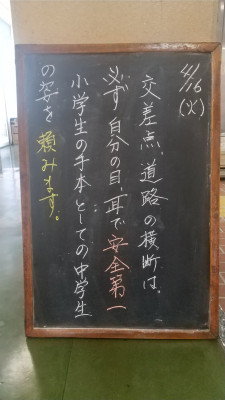 4/16(火)
交差点、道路の横断は、
必ず自分の目、耳で安全第一
小学生の手本としての中学生
の姿を頼みます。